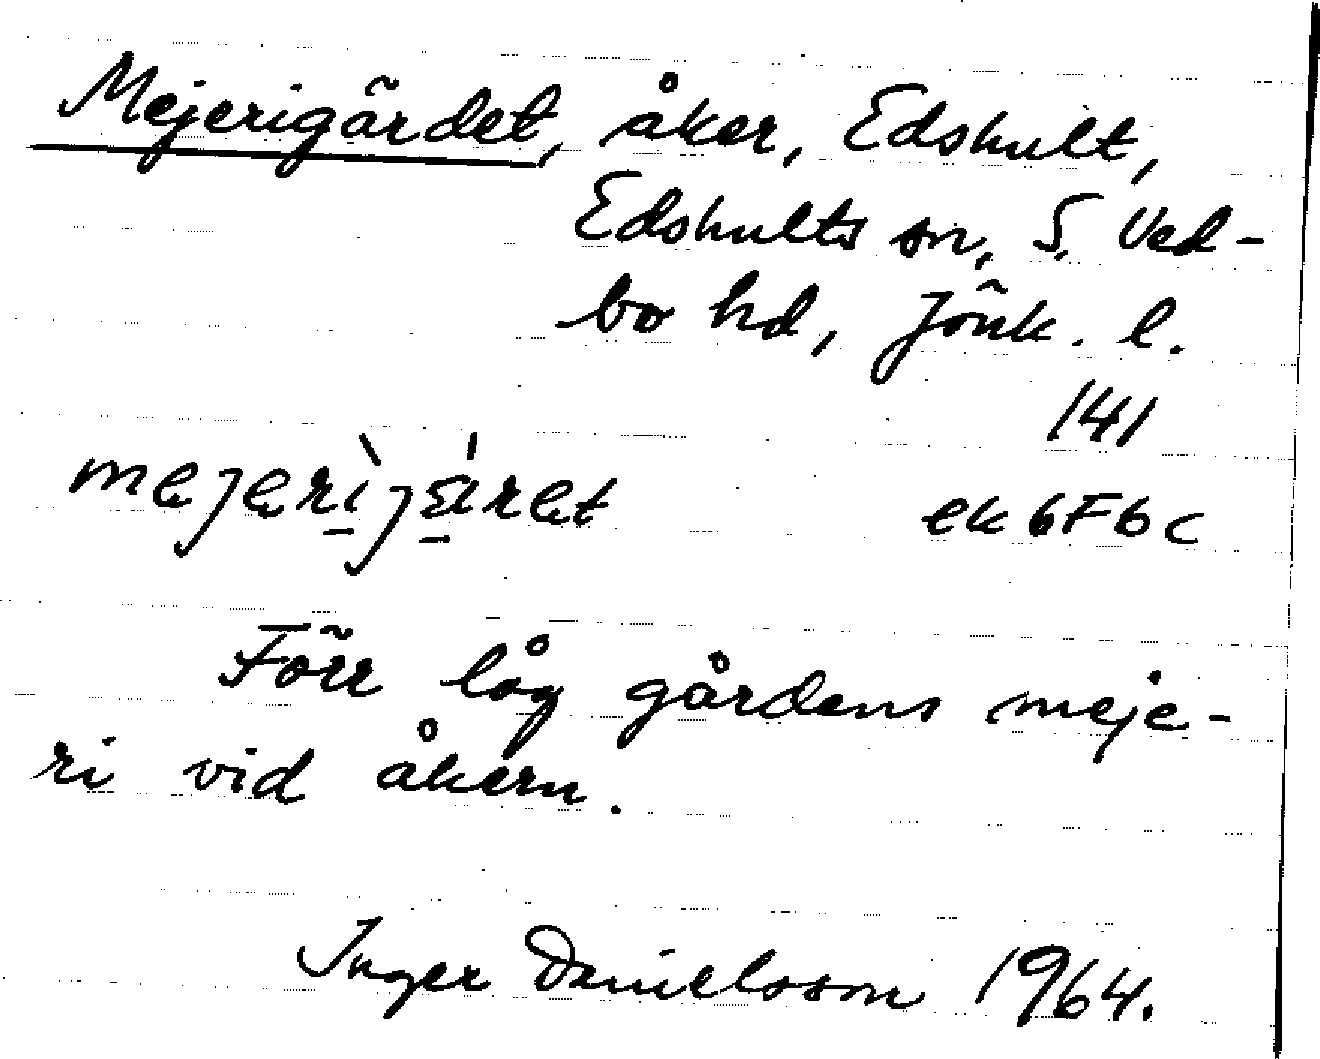 Mejerigärdet, åker, Edshult,
Edshults sn, S. Ved-
bo hd, Jönk. l.
141
mejerìjä́ret ek 6F6c
Förr låg gårdens meje-
ri vid åkern.
Inger Danielsson 1964.